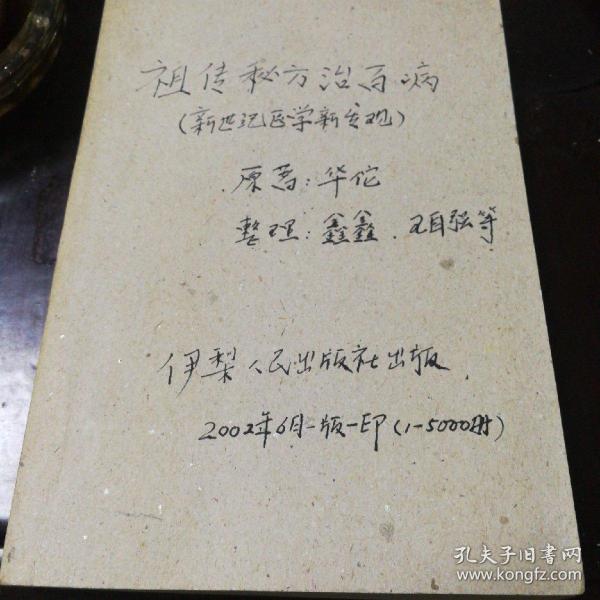 祖传秘方治百病
(新世纪医学新发现)
原著：华佗
整理：鑫鑫．王自强等
伊犁人民出版社出版．
2002年6月一版一印(1-5000册)
孔夫子旧书网
www.kongfz.com